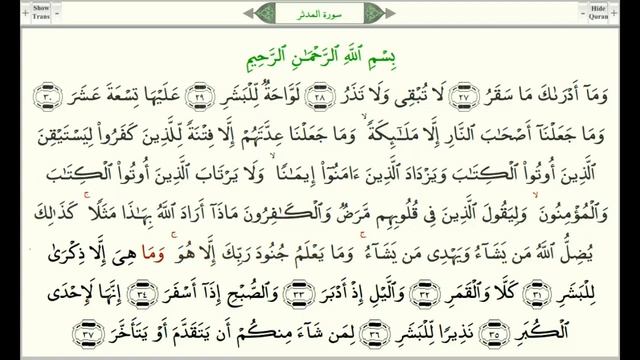 Show Trans
سورة المدثر
Hide Quran
بِسْمِ ٱللَّهِ ٱلرَّحْمَٰنِ ٱلرَّحِيمِ
وَمَآ أَدْرَىٰكَ مَا سَقَرُ ٢٧ لَا تُبْقِى وَلَا تَذَرُ ٢٨ لَوَّاحَةٌ لِّلْبَشَرِ ٢٩ عَلَيْهَا تِسْعَةَ عَشَرَ ٣٠
وَمَا جَعَلْنَآ أَصْحَٰبَ ٱلنَّارِ إِلَّا مَلَٰٓئِكَةً ۙ وَمَا جَعَلْنَا عِدَّتَهُمْ إِلَّا فِتْنَةً لِّلَّذِينَ كَفَرُوا۟ لِيَسْتَيْقِنَ
ٱلَّذِينَ أُوتُوا۟ ٱلْكِتَٰبَ وَيَزْدَادَ ٱلَّذِينَ ءَامَنُوٓا۟ إِيمَٰنًا ۙ وَلَا يَرْتَابَ ٱلَّذِينَ أُوتُوا۟ ٱلْكِتَٰبَ
وَٱلْمُؤْمِنُونَ ۙ وَلِيَقُولَ ٱلَّذِينَ فِى قُلُوبِهِم مَّرَضٌ وَٱلْكَٰفِرُونَ مَاذَآ أَرَادَ ٱللَّهُ بِهَٰذَا مَثَلًا ۚ كَذَٰلِكَ
يُضِلُّ ٱللَّهُ مَن يَشَآءُ وَيَهْدِى مَن يَشَآءُ ۚ وَمَا يَعْلَمُ جُنُودَ رَبِّكَ إِلَّا هُوَ ۚ وَمَا هِىَ إِلَّا ذِكْرَىٰ
لِلْبَشَرِ ٣١ كَلَّا وَٱلْقَمَرِ ٣٢ وَٱلَّيْلِ إِذْ أَدْبَرَ ٣٣ وَٱلصُّبْحِ إِذَآ أَسْفَرَ ٣٤ إِنَّهَا لَإِحْدَى
ٱلْكُبَرِ ٣٥ نَذِيرًا لِّلْبَشَرِ ٣٦ لِمَن شَآءَ مِنكُمْ أَن يَتَقَدَّمَ أَوْ يَتَأَخَّرَ ٣٧